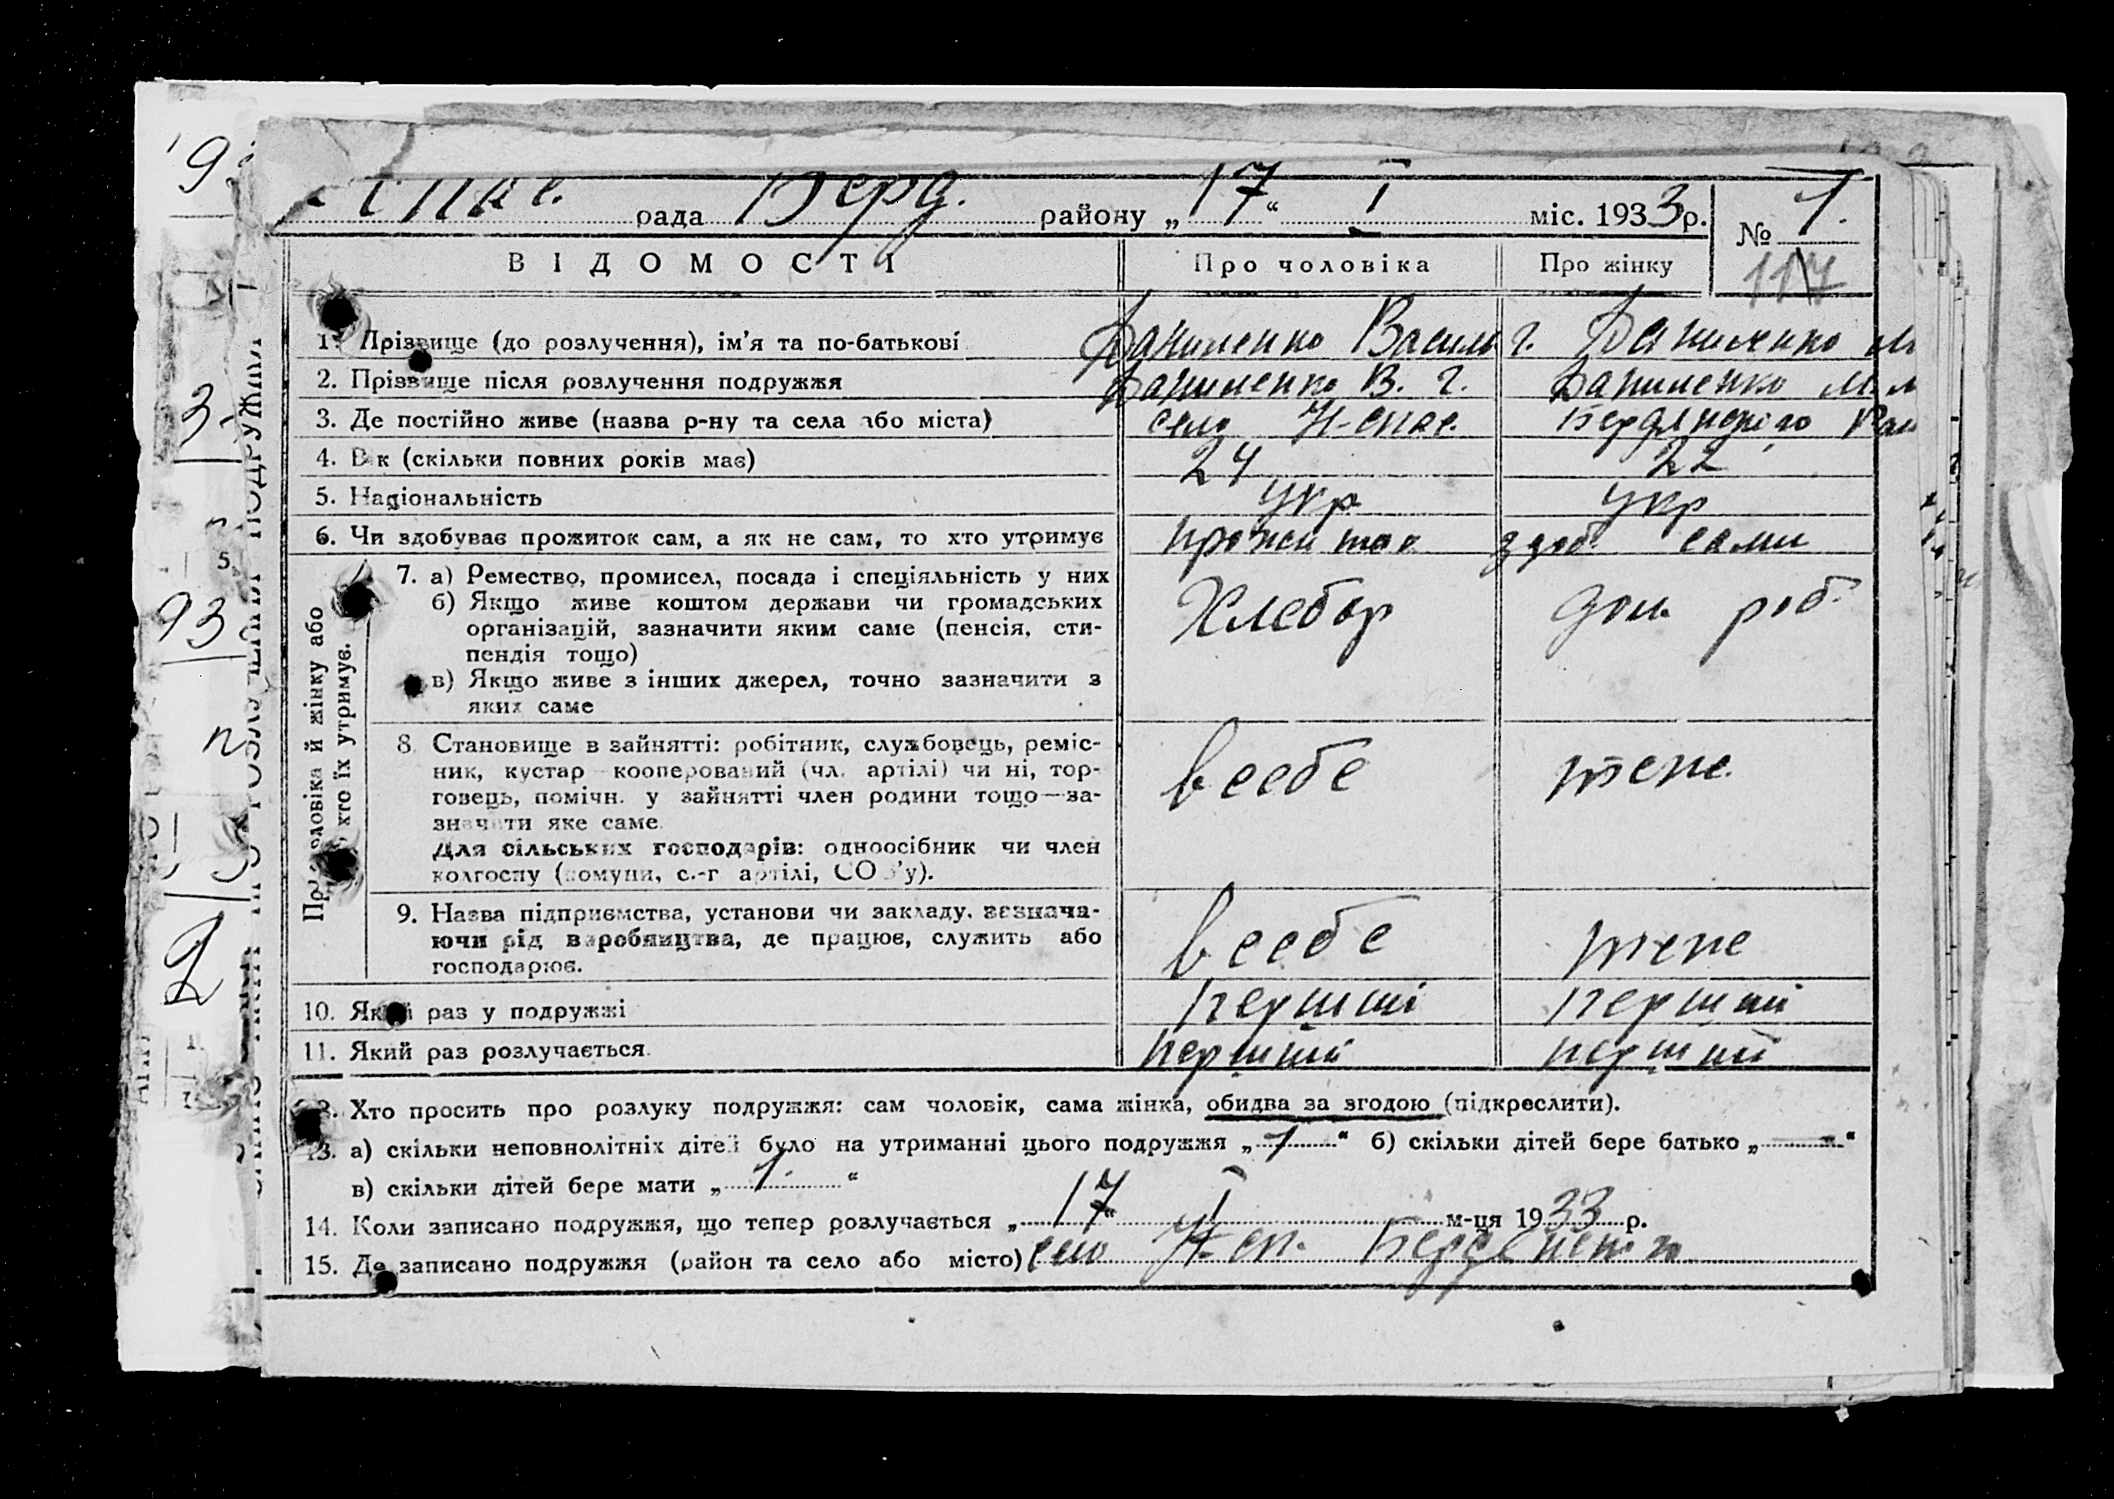 рада Берд. району „ 17 “ I міс. 1933 р. № 1.
117
ВІДОМОСТІ Про чоловіка Про жінку
1. Прізвище (до розлучення), ім'я та по-батькові Даниленко Василь г. Даниленко
2. Прізвище після розлучення подружжя Даниленко В. г. Даниленко
3. Де постійно живе (назва р-ну та села або міста) село Н-спас.
4. Вік (скільки повних років має) 24 22
5. Національність укр укр
6. Чи здобуває прожиток сам, а як не сам, то хто утримує здоб. сами
Про чоловіка й жінку або хто їх утримує.
7. а) Ремество, промисел, посада і спеціяльність у них Хлебор дом. роб.
б) Якщо живе коштом держави чи громадських
організацій, зазначити яким саме (пенсія, сти-
пендія тощо)
в) Якщо живе з інших джерел, точно зазначити з
яких саме
8. Становище в зайнятті: робітник, службовець, реміс- в себе
ник, кустар—кооперований (чл. артілі) чи ні, тор-
говець, помічн. у зайнятті член родини тощо—за-
значити яке саме.
Для сільських господарів: одноосібник чи член
колгоспу (комуни, с.-г артілі, СОЗ'у).
9. Назва підприємства, установи чи закладу, зазнача- в себе
ючи рід виробництва, де працює, служить або
господарює.
10. Який раз у подружжі перший перший
11. Який раз розлучається. перший перший
12. Хто просить про розлуку подружжя: сам чоловік, сама жінка, обидва за згодою (підкреслити).
13. а) скільки неповнолітніх дітей було на утриманні цього подружжя „ 1 “ б) скільки дітей бере батько „ – “
в) скільки дітей бере мати „ 1. “
14. Коли записано подружжя, що тепер розлучається „ 17 “ I м-ця 1933 р.
15. Де записано подружжя (район та село або місто) село Н-сп.